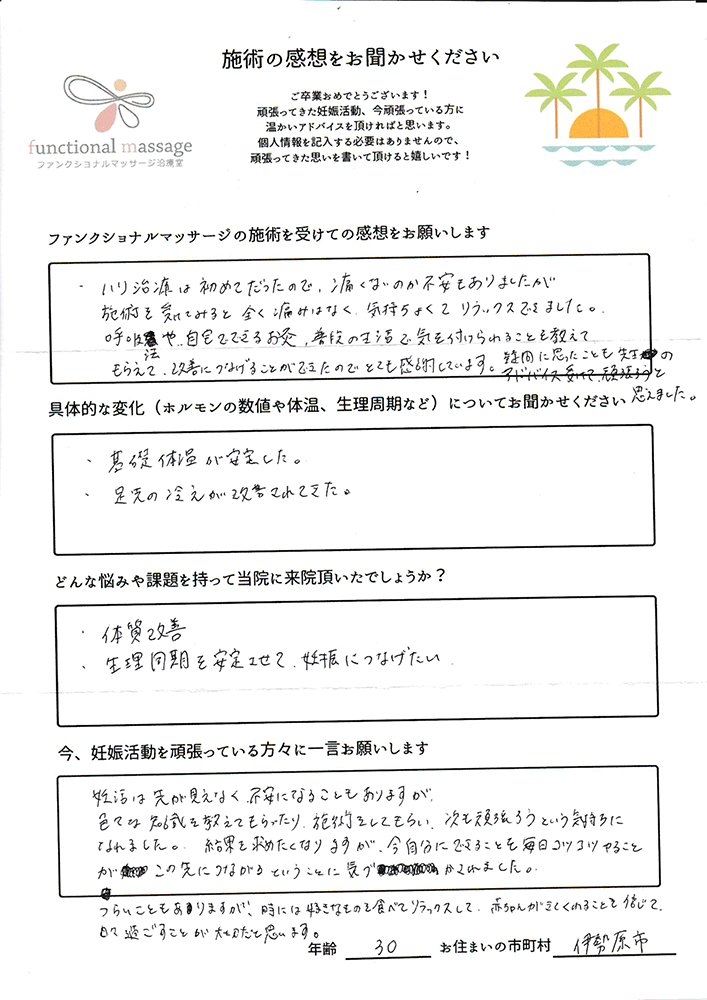 施術の感想をお聞かせください
functional massage
ファンクショナルマッサージ治療堂
ご卒業おめでとうございます！
頑張ってきた妊娠活動、今頑張っている方に
温かいアドバイスを頂ければと思います。
個人情報を記入する必要はありませんので、
頑張ってきた思いを書いて頂けると嬉しいです！
ファンクショナルマッサージの施術を受けての感想をお願いします
・ハリ治療は初めてだったので、痛くないのか不安もありましたが
施術を受けてみると全く痛みはなく、気持ちよくてリラックスできました。
呼吸法や、自宅でできるお灸、普段の生活で気を付けられることも教えて
もらえて、改善につなげることができたのでとても感謝しています。疑問に思ったことも先生の
アドバイス受けて、頑張ろうと
思えました。
具体的な変化（ホルモンの数値や体温、生理周期など）についてお聞かせください
・基礎体温が安定した。
・足先の冷えが改善されてきた。
どんな悩みや課題を持って当院に来院頂いたでしょうか？
・体質改善
・生理周期を安定させて、妊娠につなげたい
今、妊娠活動を頑張っている方々に一言お願いします
妊活は先が見えなく、不安になることもありますが、
色々な知識を教えてもらったり、施術をしてもらい、次も頑張ろうという気持ちに
なれました。結果を求めたくなりますが、今自分にできることを毎日コツコツやること
が この先につながるということに気づかされました。
つらいこともありますが、時には好きなものを食べてリラックスして、赤ちゃんがきてくれることを信じて、
日々過ごすことが大切だと思います。
年齢 30 お住まいの市町村 伊勢原市